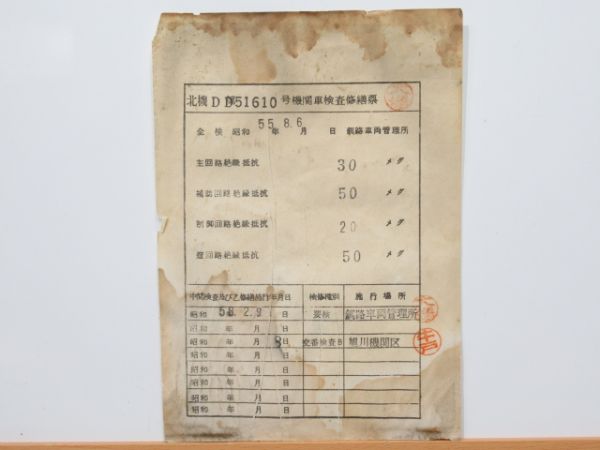 北機DD51610号機関車検査修繕票
全検 昭和 55.8.6 年 月 日 釧路車両管理所
主回路絶縁抵抗 30 メグ
補助回路絶縁抵抗 50 メグ
制御回路絶縁抵抗 20 メグ
蓄回路絶縁抵抗 50 メグ
中間検査及び乙修繕施行年月日 検修種別 施行場所
昭和 58.2.9 日 要検 釧路車両管理所
昭和 年 月 8 日 交番検査B 旭川機関区
昭和 年 月 日
昭和 年 月 日
昭和 年 月 日
昭和 年 月 日
昭和 年 月 日